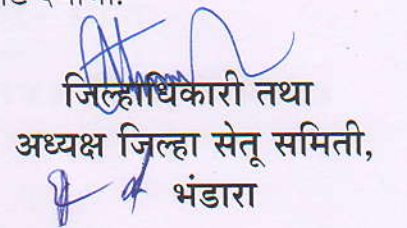 जिल्हाधिकारी तथा
अध्यक्ष जिल्हा सेतू समिती,
भंडारा